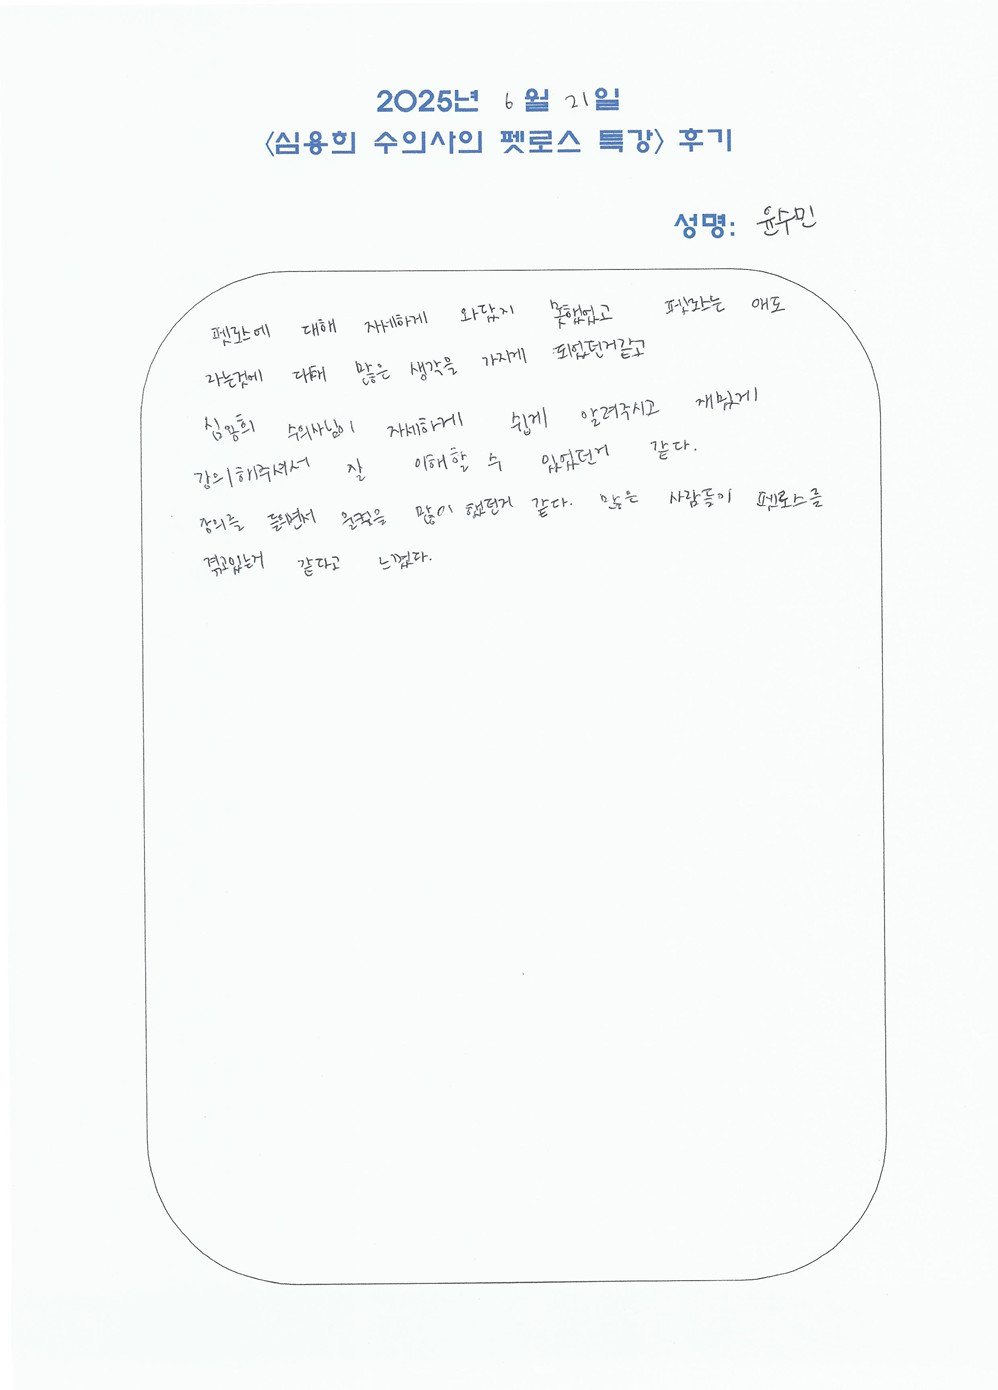 2025년 6월 21일
<심용희 수의사의 펫로스 특강> 후기
성명: 윤수민
펫로스에 대해 자세하게 와닿지 못했었고 펫로스는 애도
라는것에 대해 많은 생각을 가지게 되었던거같고
심용희 수의사님이 자세하게 쉽게 알려주시고 재밌게
강의해주셔서 잘 이해할 수 있었던거 같다.
강의를 들으면서 울컥을 많이 했던거 같다. 많은 사람들이 펫로스를
겪고있는거 같다고 느꼈다.